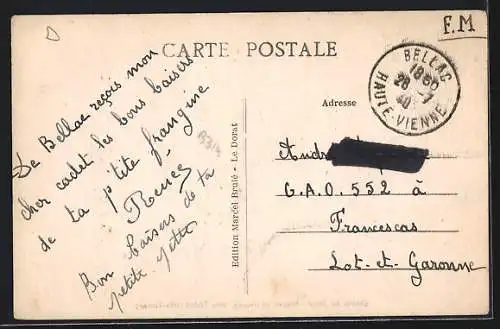 F.M
CARTE POSTALE
BELLAC
18 50
28 -7
40
HAUTE-VIENNE
De Bellac reçois mon
cher cadet les bons baisers
de ta p'tite frangine
Renée
Bon baisers de ta
petite
Edition Marcel Brulé - Le Dorat
Adresse
André
G.A.O. 552 à
Francescas
Lot-et-Garonne